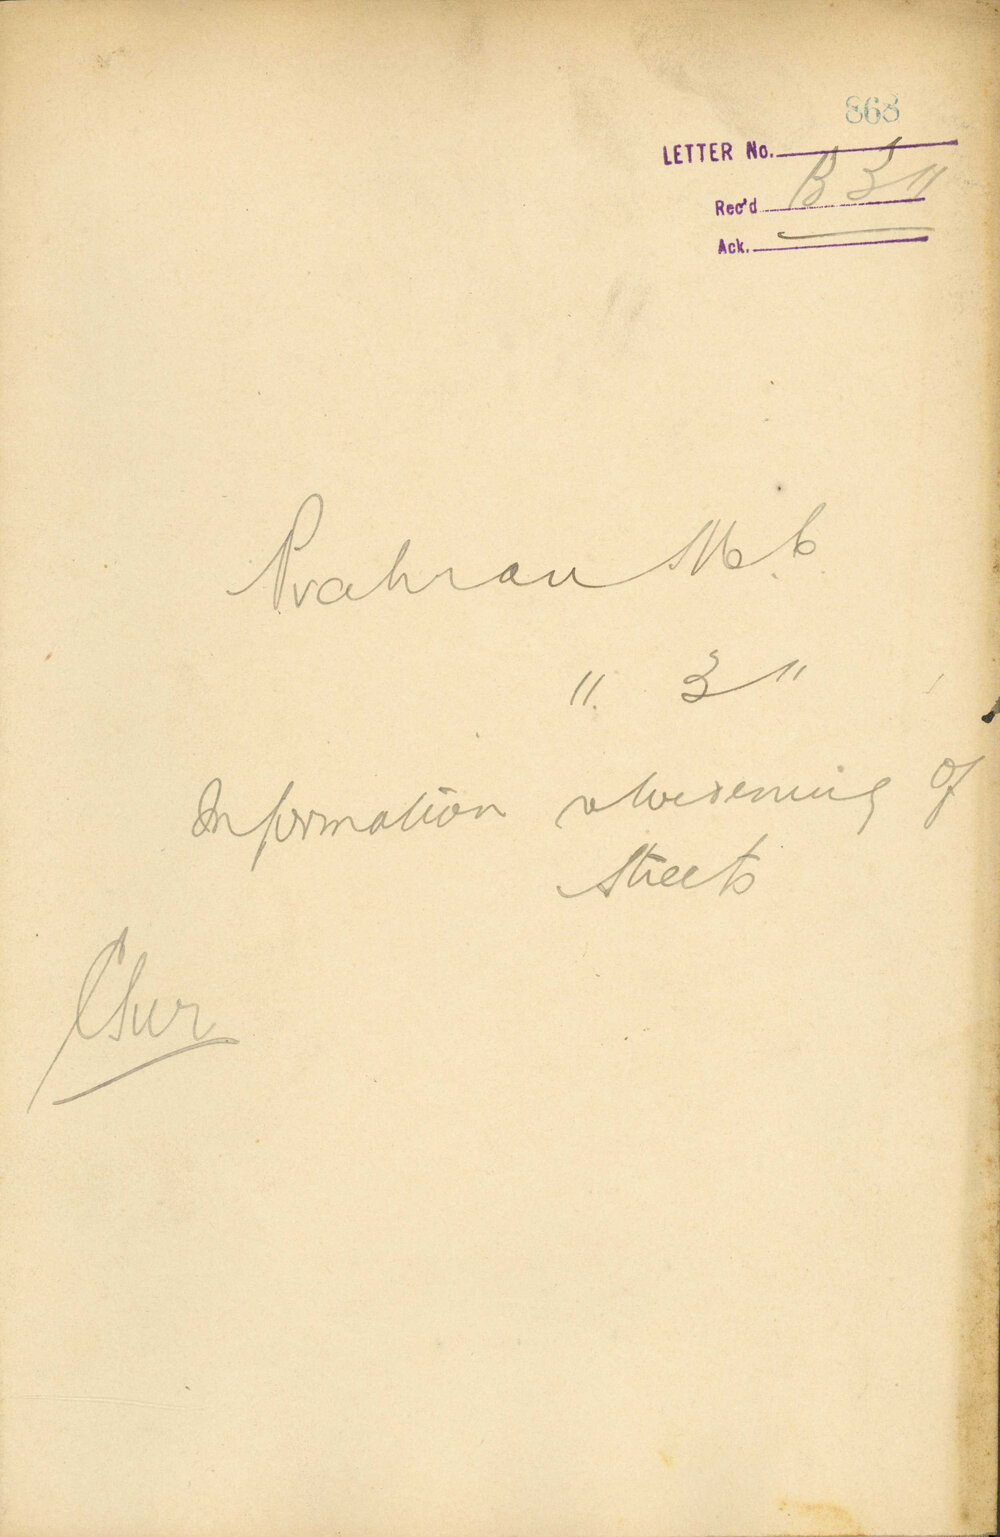 868
LETTER No.
Rec'd B 3 "
Ack.
Prahran M. C.
" 3 "
Information widening of
Streets
CSur